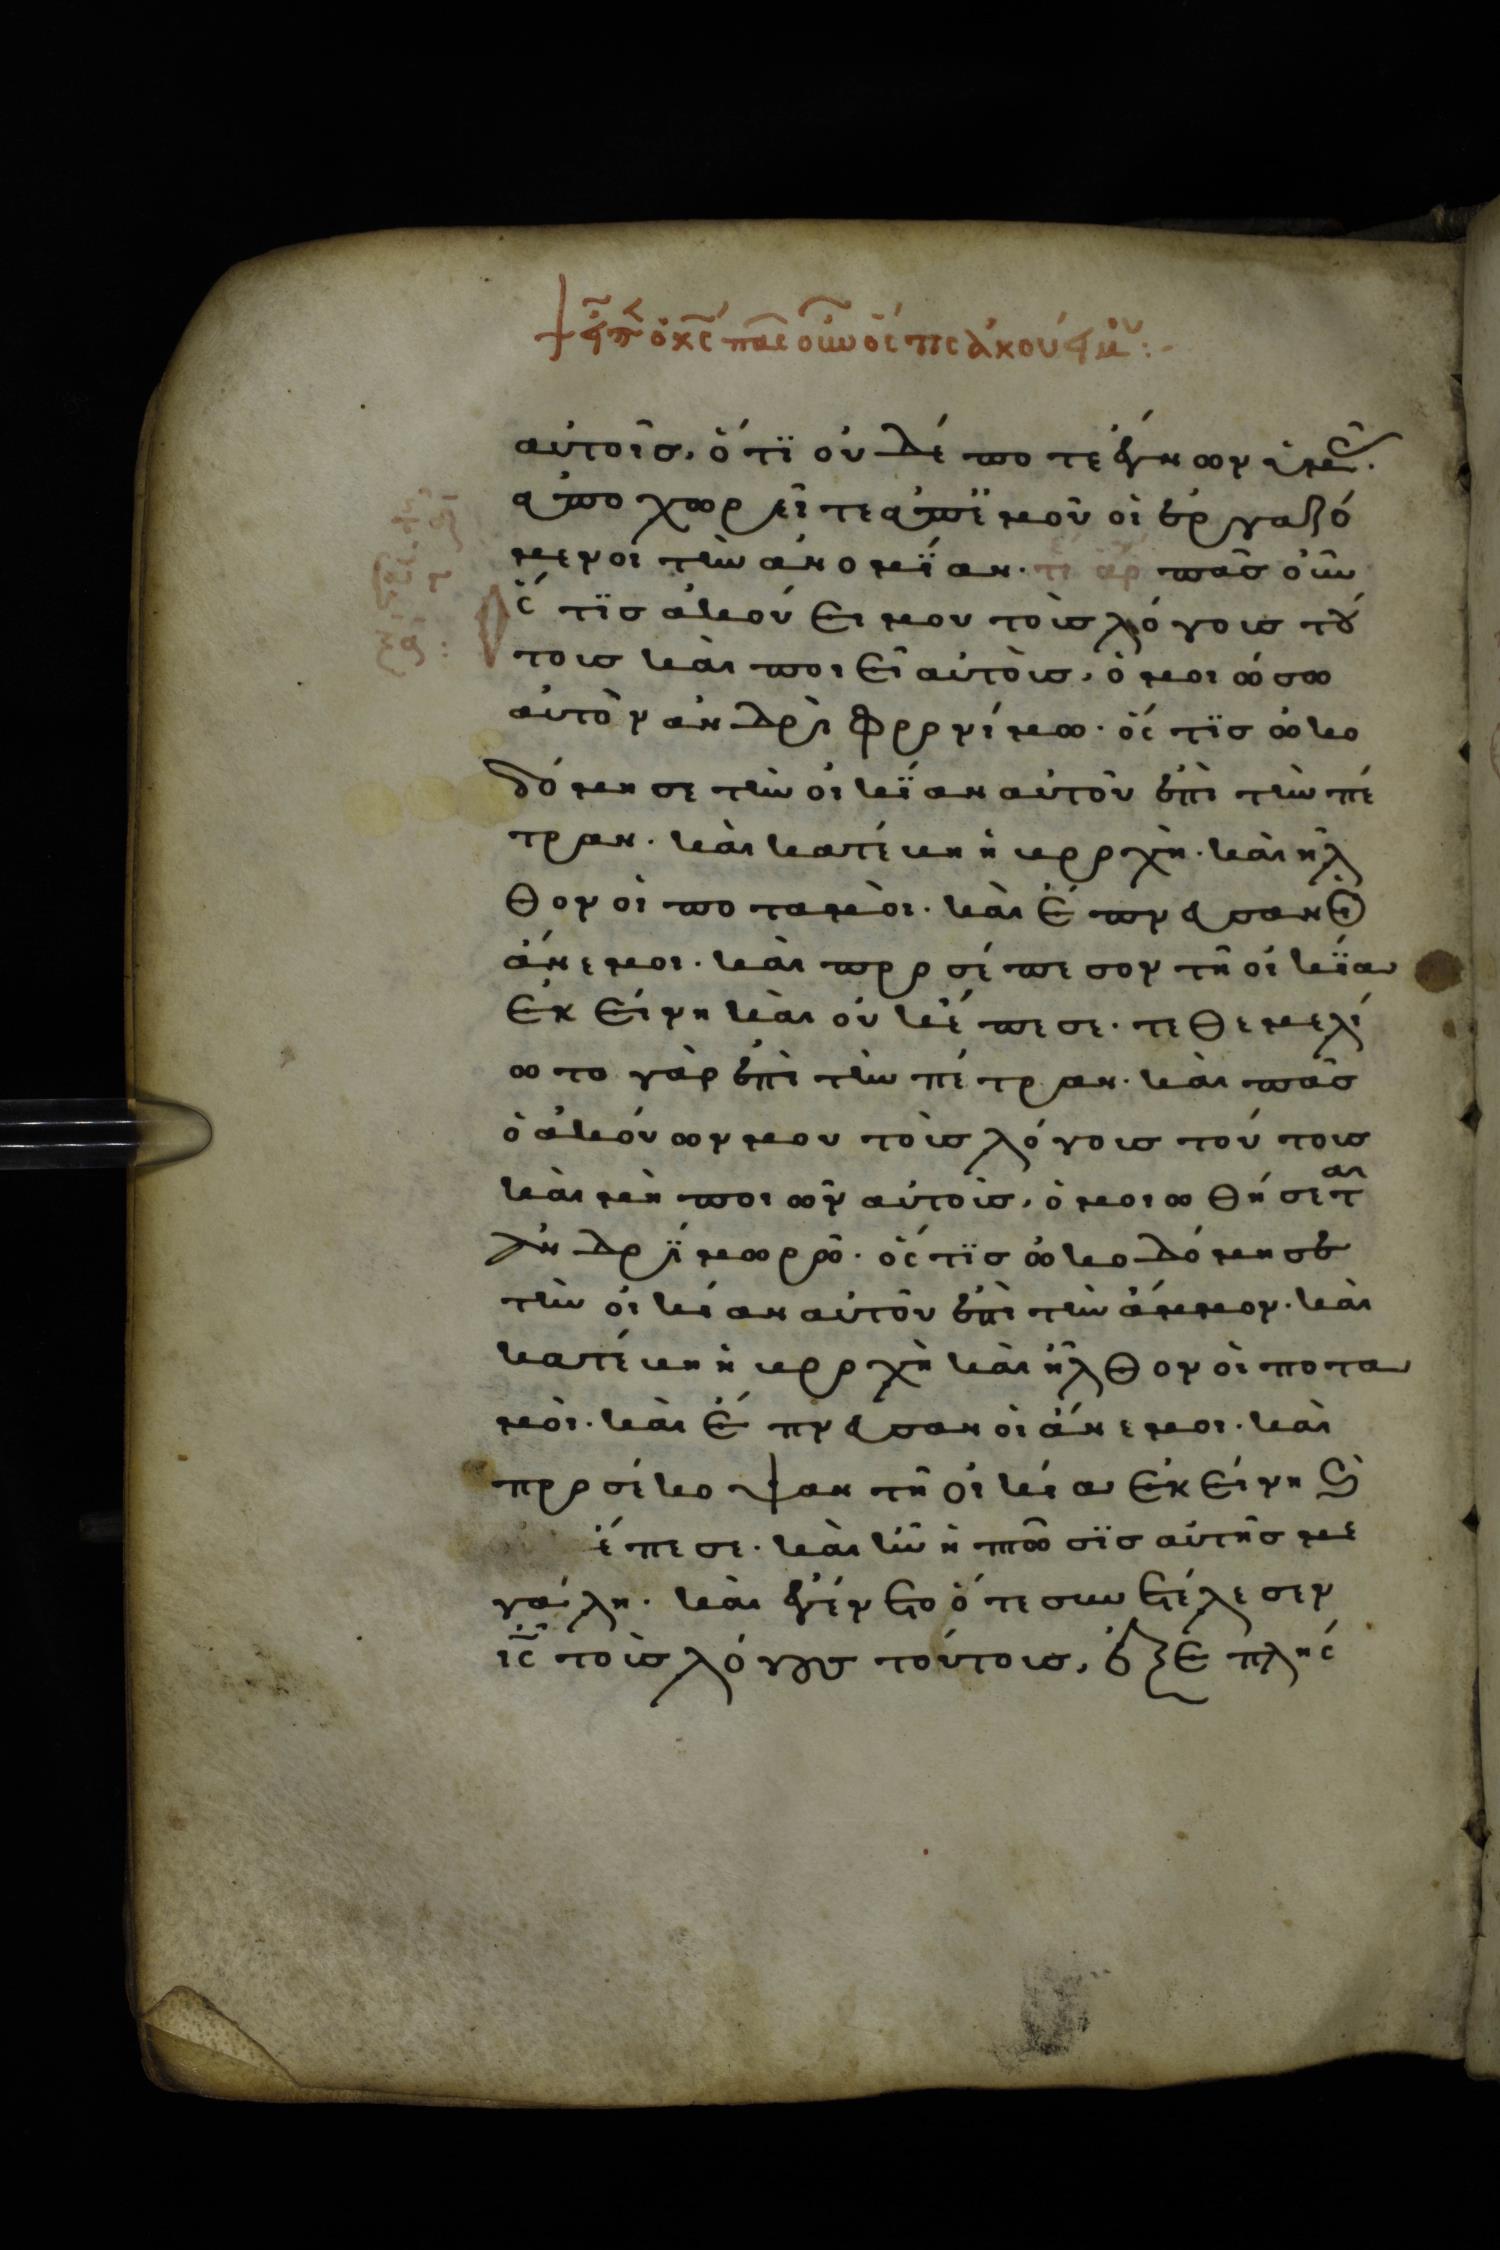 αὐτοῖσ, ὅτϊ οὐδέποτε ἔγνων ὑμᾶς·
ἀποχωρεῖτε ἀπἐμοῦ οἱ ἐργαζό
μενοι τὴν ἀνομΐαν· πᾶσ οὖν
ὅς τϊσ ἀκούει μου τοὺσ λόγουσ τού
τουσ καὶ ποιεῖ αὐτοὺσ, ὁμοιώσω
αὐτὸν ἀνδρὶ φρονίμω· ὅς τϊσ ὠκο
δόμησε τὴν οἰκΐαν αὐτοῦ ἐπὶ τὴν πέ
τραν· καὶ κατέβη ἡ βροχὴ· καὶ ἦλ
θον οἱ ποταμοὶ· καὶ ἔπνευσαν οἱ
ἄνεμοι· καὶ προσέπεσον τῆ οἰκΐα
ἐκείνη καὶ οὐκ ἔπεσε· τεθεμελί
ωτο γὰρ ἐπὶ τὴν πέτραν· καὶ πᾶσ
ὁ ἀκούων μου τοὺσ λόγουσ τούτουσ
καὶ μὴ ποιῶν αὐτοὺσ, ὁμοιωθήσεται
ἀνδρΐ μωρῶ· ὅς τϊσ ὠκοδόμησε
τὴν οἰκίαν αὐτοῦ ἐπὶ τὴν ἄμμον· καὶ
κατέβη ἡ βροχὴ καὶ ἦλθον οἱ ποτα
μοὶ· καὶ ἔπνευσαν οἱ ἄνεμοι· καὶ
προσέκοψαν τῆ οἰκία ἐκείνη καὶ
ἔπεσε· καὶ ἦν ἡ πτῶσϊσ αὐτῆσ με
γάλη· καὶ ἐγένετο ὅτε συνετέλεσεν
ὁ ις τοὺσ λόγουσ τούτουσ, ἐξεπλής